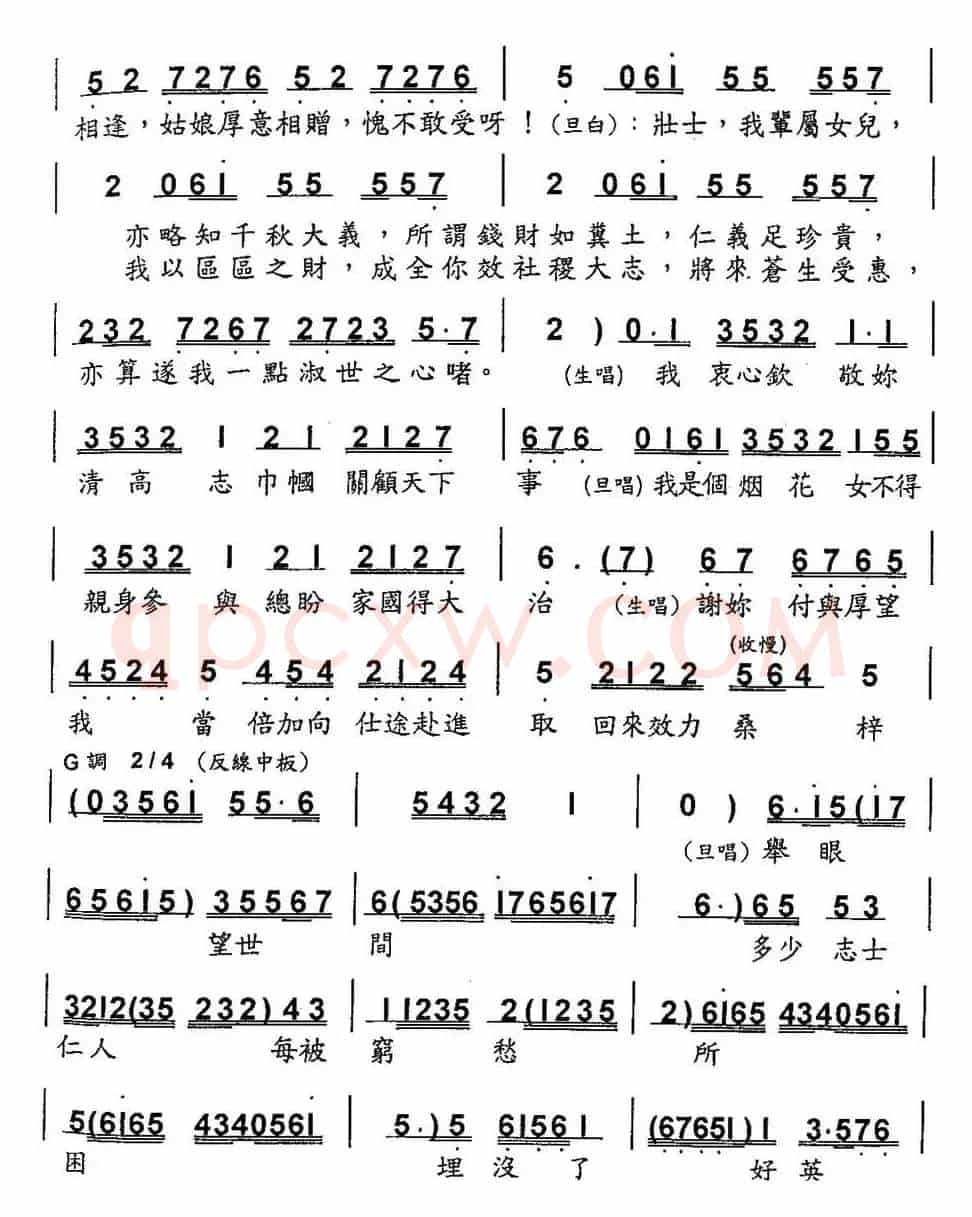 5 2 7276 5 2 7276 | 5 061 55 557
相逢，姑娘厚意相贈，愧不敢受呀！（旦白）：壯士，我輩屬女兒，
2 061 55 557 | 2 061 55 557
亦略知千秋大義，所謂錢財如糞土，仁義足珍貴，
我以區區之財，成全你效社稷大志，將來蒼生受惠，
232 7267 2723 5·7 | 2 ) 0·1 3532 1·1
亦算遂我一點淑世之心啫。（生唱）我 衷心欽 敬妳
3532 1 21 2127 | 676 0161 3532 155
清高 志巾幗 關顧天下 事（旦唱）我是個烟花 女不得
3532 1 21 2127 | 6 . (7) 67 6765
親身參 與總盼 家國得大 治（生唱）謝妳 付與厚望
（收慢）
4524 5 454 2124 | 5 2122 564 5
我 當 倍加向 仕途赴進 取 回來效力 桑 梓
G調 2/4（反線中板）
(03561 55·6 | 5432 1 | 0 ) 6·15(17
（旦唱）舉眼
65615) 35567 | 6(5356 1765617 | 6·)65 53
望世 間 多少 志士
3212(35 232)43 | 11235 2(1235 | 2)6165 4340561
仁人 每被 窮 愁 所
5(6165 4340561 | 5·)5 61561 | (67651)1 3·576
困 埋 沒 了 好英
qpcxw.COM